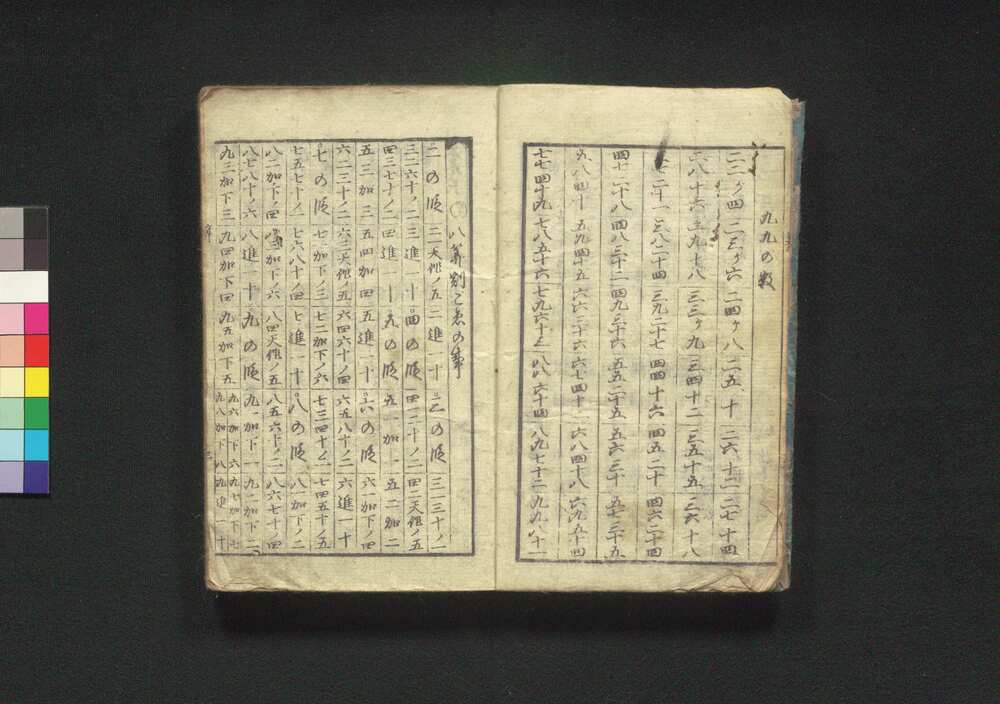 九九の数
二二ヶ四 二三ヶ六 二四ヶ八 二五ノ十 二六十二 二七十四
二八十六 二九十八 三三ヶ九 三四十二 三五十五 三六十八
三七二十一 三八二十四 三九二十七 四四十六 四五二十 四六二十四
四七二十八 四八三十二 四九三十六 五五二十五 五六三十 五七三十五
五八四十 五九四十五 六六三十六 六七四十二 六八四十八 六九五十四
七七四十九 七八五十六 七九六十三 八八六十四 八九七十二 九九八十一
八算割こゑの事
二の段 二一天作ノ五 二進一十 三の段 三一三十ノ一
三二六十ノ二 三進一十 四の段 四一二十ノ二 四二天作ノ五
四三七十ノ二 四進一十 五の段 五一加一 五二加二
五三加三 五四加四 五進一十 六の段 六一加下ノ四
六二三十ノ二 六三天作ノ五 六四六十ノ四 六五八十ノ二 六進一十
七の段 七一加下ノ三 七二加下ノ六 七三四十ノ二 七四五十ノ五
七五七十ノ一 七六八十ノ四 七進一十 八の段 八一加下ノ二
八二加下ノ四 八三加下ノ六 八四天作ノ五 八五六十ノ二 八六七十ノ四
八七八十ノ六 八進一十 九の段 九一加下ノ一 九二加下二
九三加下三 九四加下四 九五加下五 九六加下六 九七加下七
九八加下八 九進一十